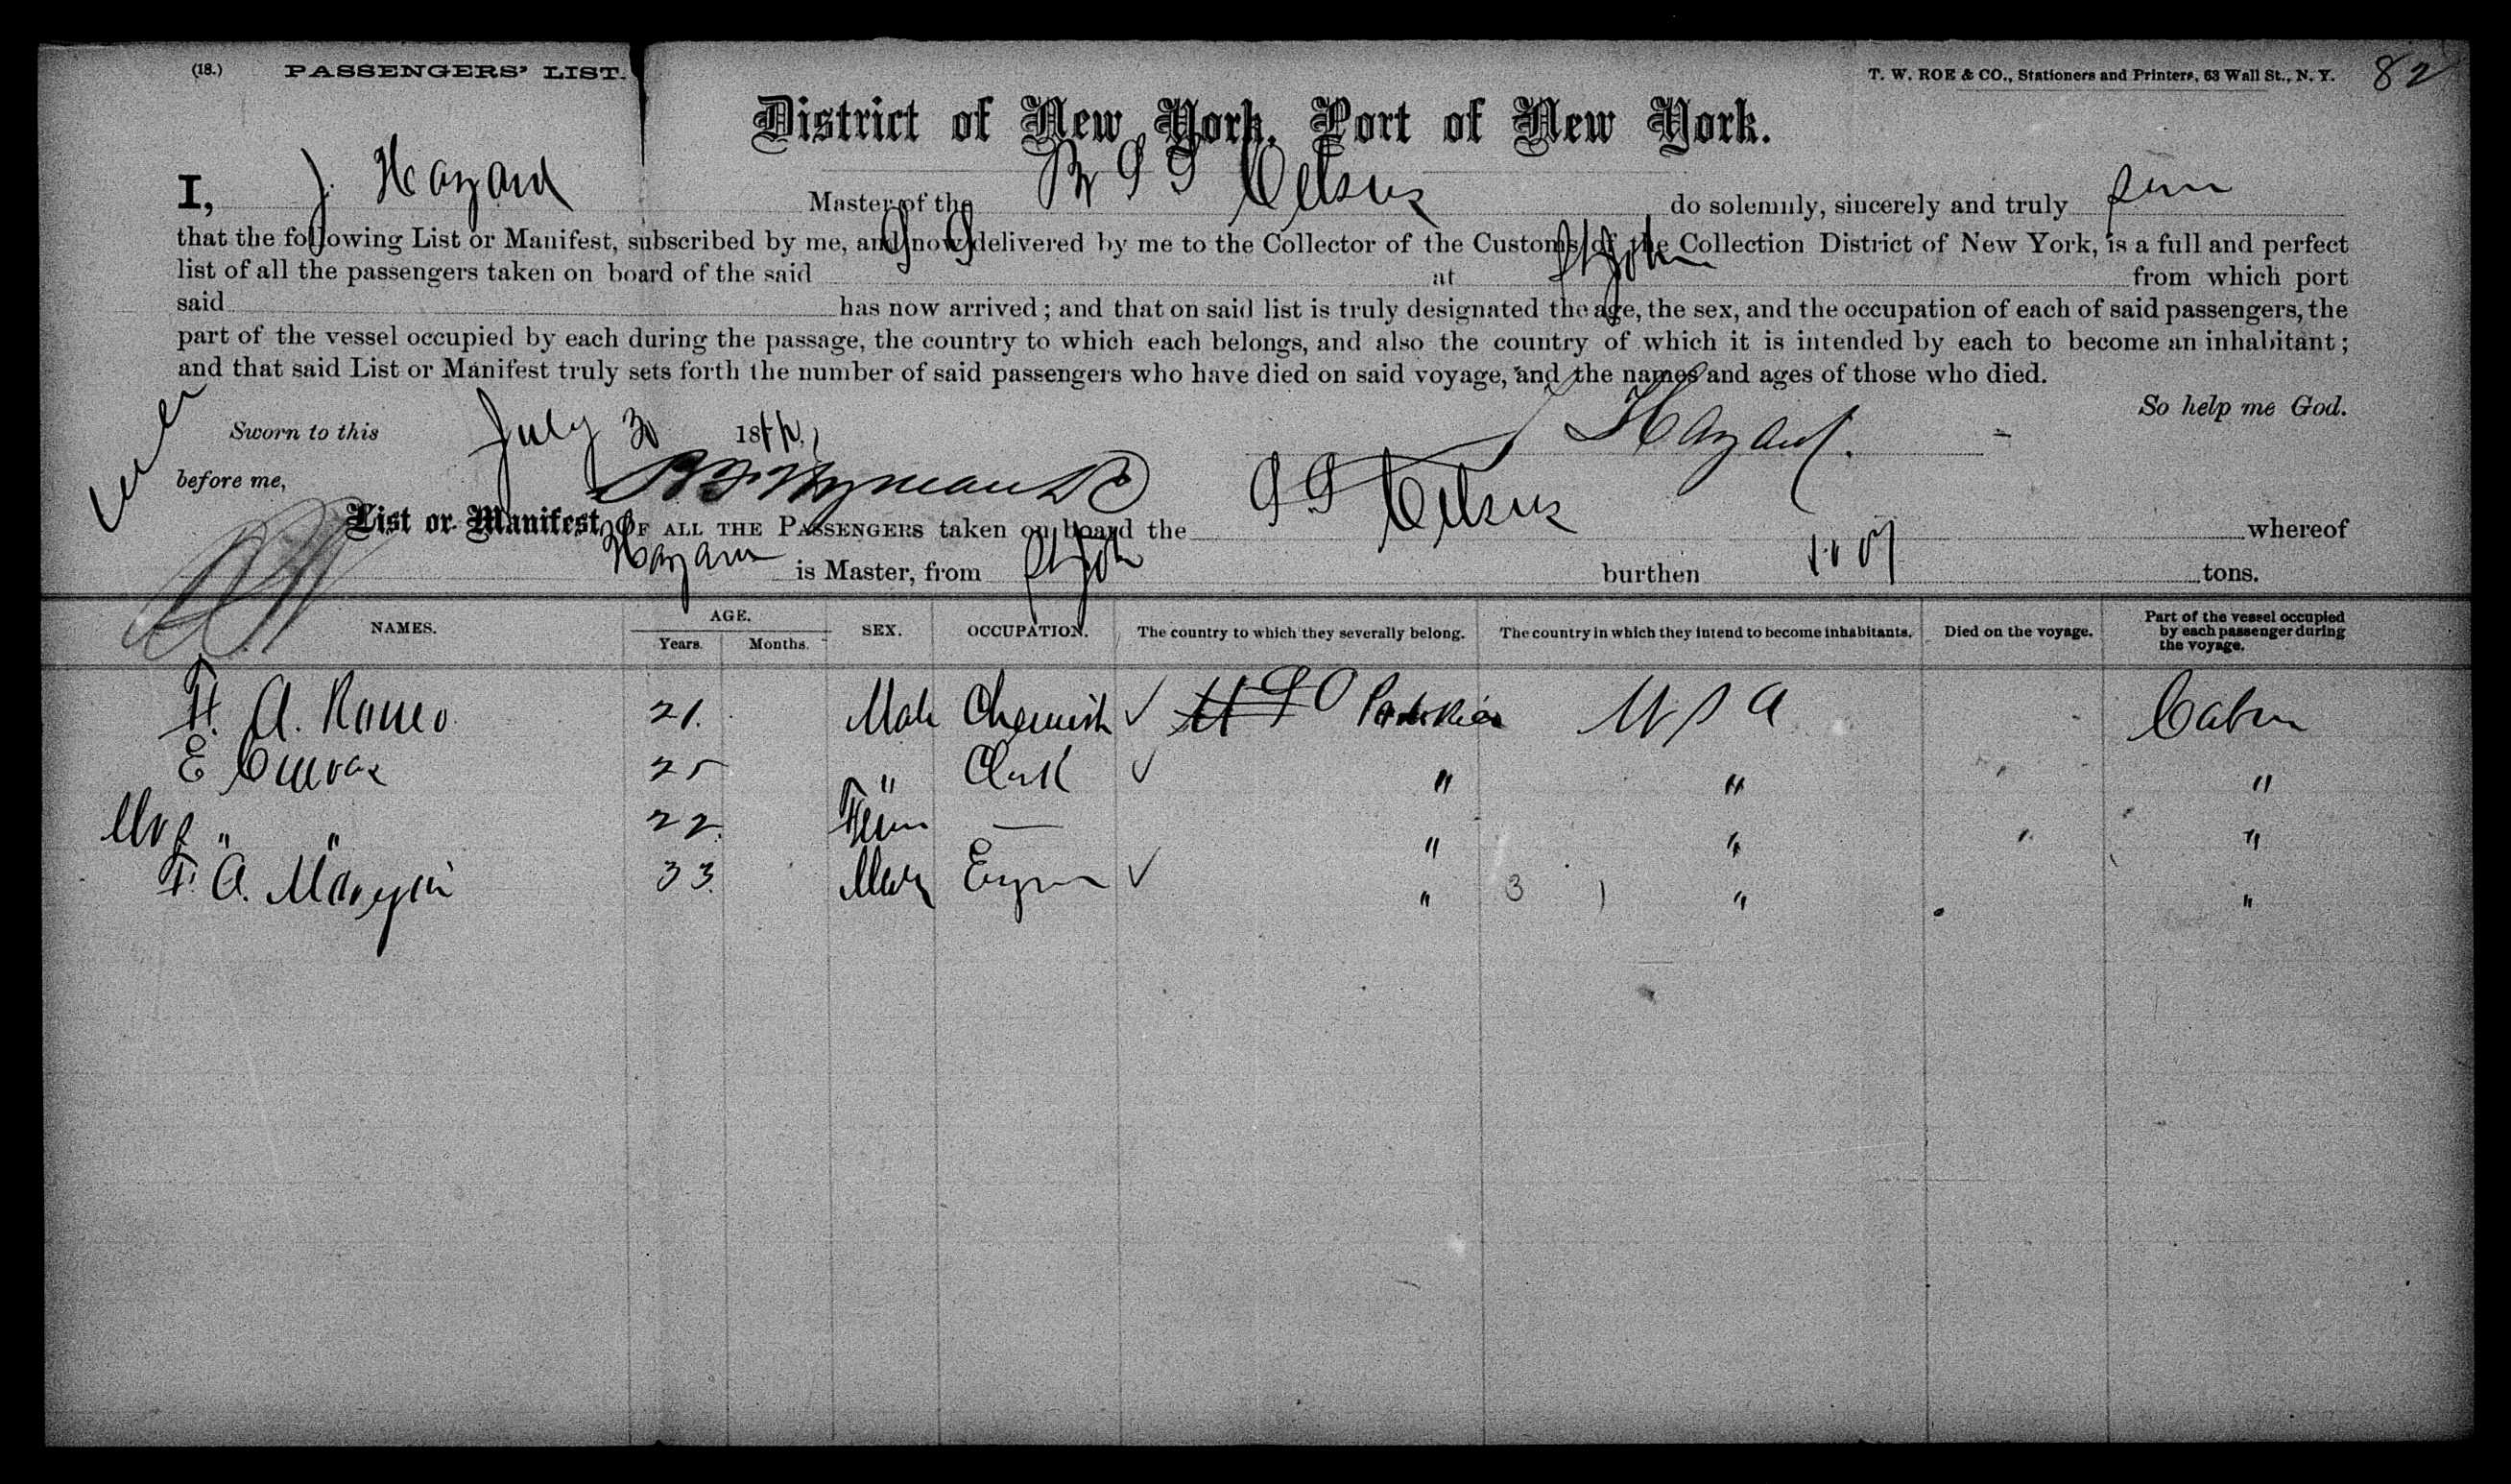 (18.) PASSENGERS' LIST. T. W. ROE & CO., Stationers and Printers, 63 Wall St., N. Y. 82
District of New York, Port of New York.
I, J. Hazard Master of the Br S S Celsus do solemnly, sincerely and truly
that the following List or Manifest, subscribed by me, and now delivered by me to the Collector of the Customs of the Collection District of New York, is a full and perfect
list of all the passengers taken on board of the said S S at St John from which port
said has now arrived; and that on said list is truly designated the age, the sex, and the occupation of each of said passengers, the
part of the vessel occupied by each during the passage, the country to which each belongs, and also the country of which it is intended by each to become an inhabitant;
and that said List or Manifest truly sets forth the number of said passengers who have died on said voyage, and the names and ages of those who died.
So help me God.
Sworn to this July 30 18 J Hazard
before me,
List or Manifest, OF ALL THE PASSENGERS taken on board the S S Celsus whereof
Hazard is Master, from St John burthen tons.
NAMES. AGE. Years. Months. SEX. OCCUPATION. The country to which they severally belong. The country in which they intend to become inhabitants. Died on the voyage. Part of the vessel occupied by each passenger during the voyage.
A. Romeo 21. Male Chemist U S A Cabin
E Cuevas 25 " Clerk " " "
Mrs " " 22. Fem — " " "
F. A. 33. Male " 3 " "